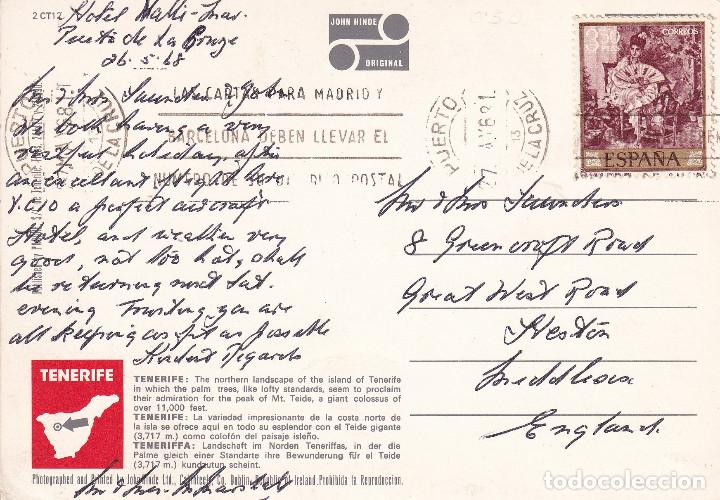 2CT12
Hotel Valle-Mar
Puerto de La Cruz
26.5.68
JOHN HINDE
ORIGINAL
3,50 PTAS
CORREOS
ESPAÑA
PUERTO DE LA CRUZ
LAS CARTAS PARA MADRID Y
BARCELONA DEBEN LLEVAR EL
NUMERO DE POSTAL
PUERTO DE LA CRUZ
Mr & Mrs Saunders
we both having a very
restful holiday, after
an excellent flight here
V.C.10 a perfect aircraft
Hotel, and weather very
good, not too hot, shall
be returning next Sat.
evening Trusting you are
all keeping as fit as possible
Kindest Regards
Mr & Mrs Saunders
8 Greencroft Road
Great West Road
Heston
Middlesex
England.
TENERIFE
TENERIFE: The northern landscape of the island of Tenerife
in which the palm trees, like lofty standards, seem to proclaim
their admiration for the peak of Mt. Teide, a giant colossus of
over 11,000 feet.
TENERIFE: La variedad impresionante de la costa norte de
la isla se ofrece aquí en todo su esplendor con el Teide gigante
(3,717 m.) como colofón del paisaje isleño.
TENERIFFA: Landschaft im Norden Teneriffas, in der die
Palme gleich einer Standarte ihre Bewunderung für el Teide
(3,717 m.) kundzutun scheint.
Photographed and Printed by John Hinde Ltd., Cabinteely, Co. Dublin, Republic of Ireland. Prohibida la Reproduccion.
todocoleccion